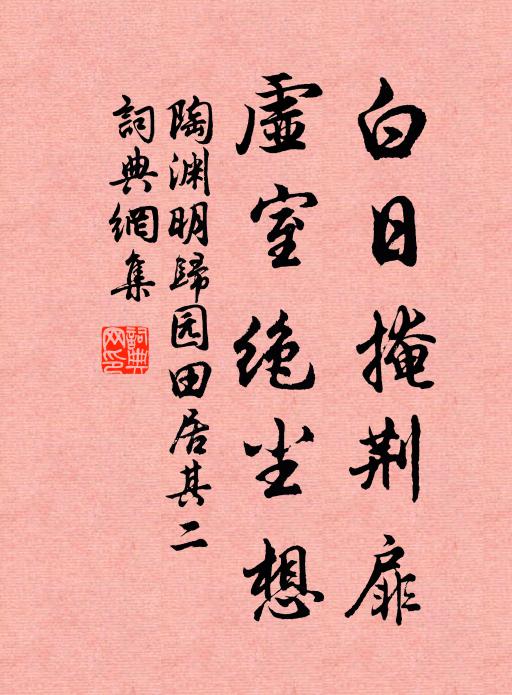 白日掩荆扉
虚室绝尘想
陶渊明歸园田居其二
詞典網集
詞典网印